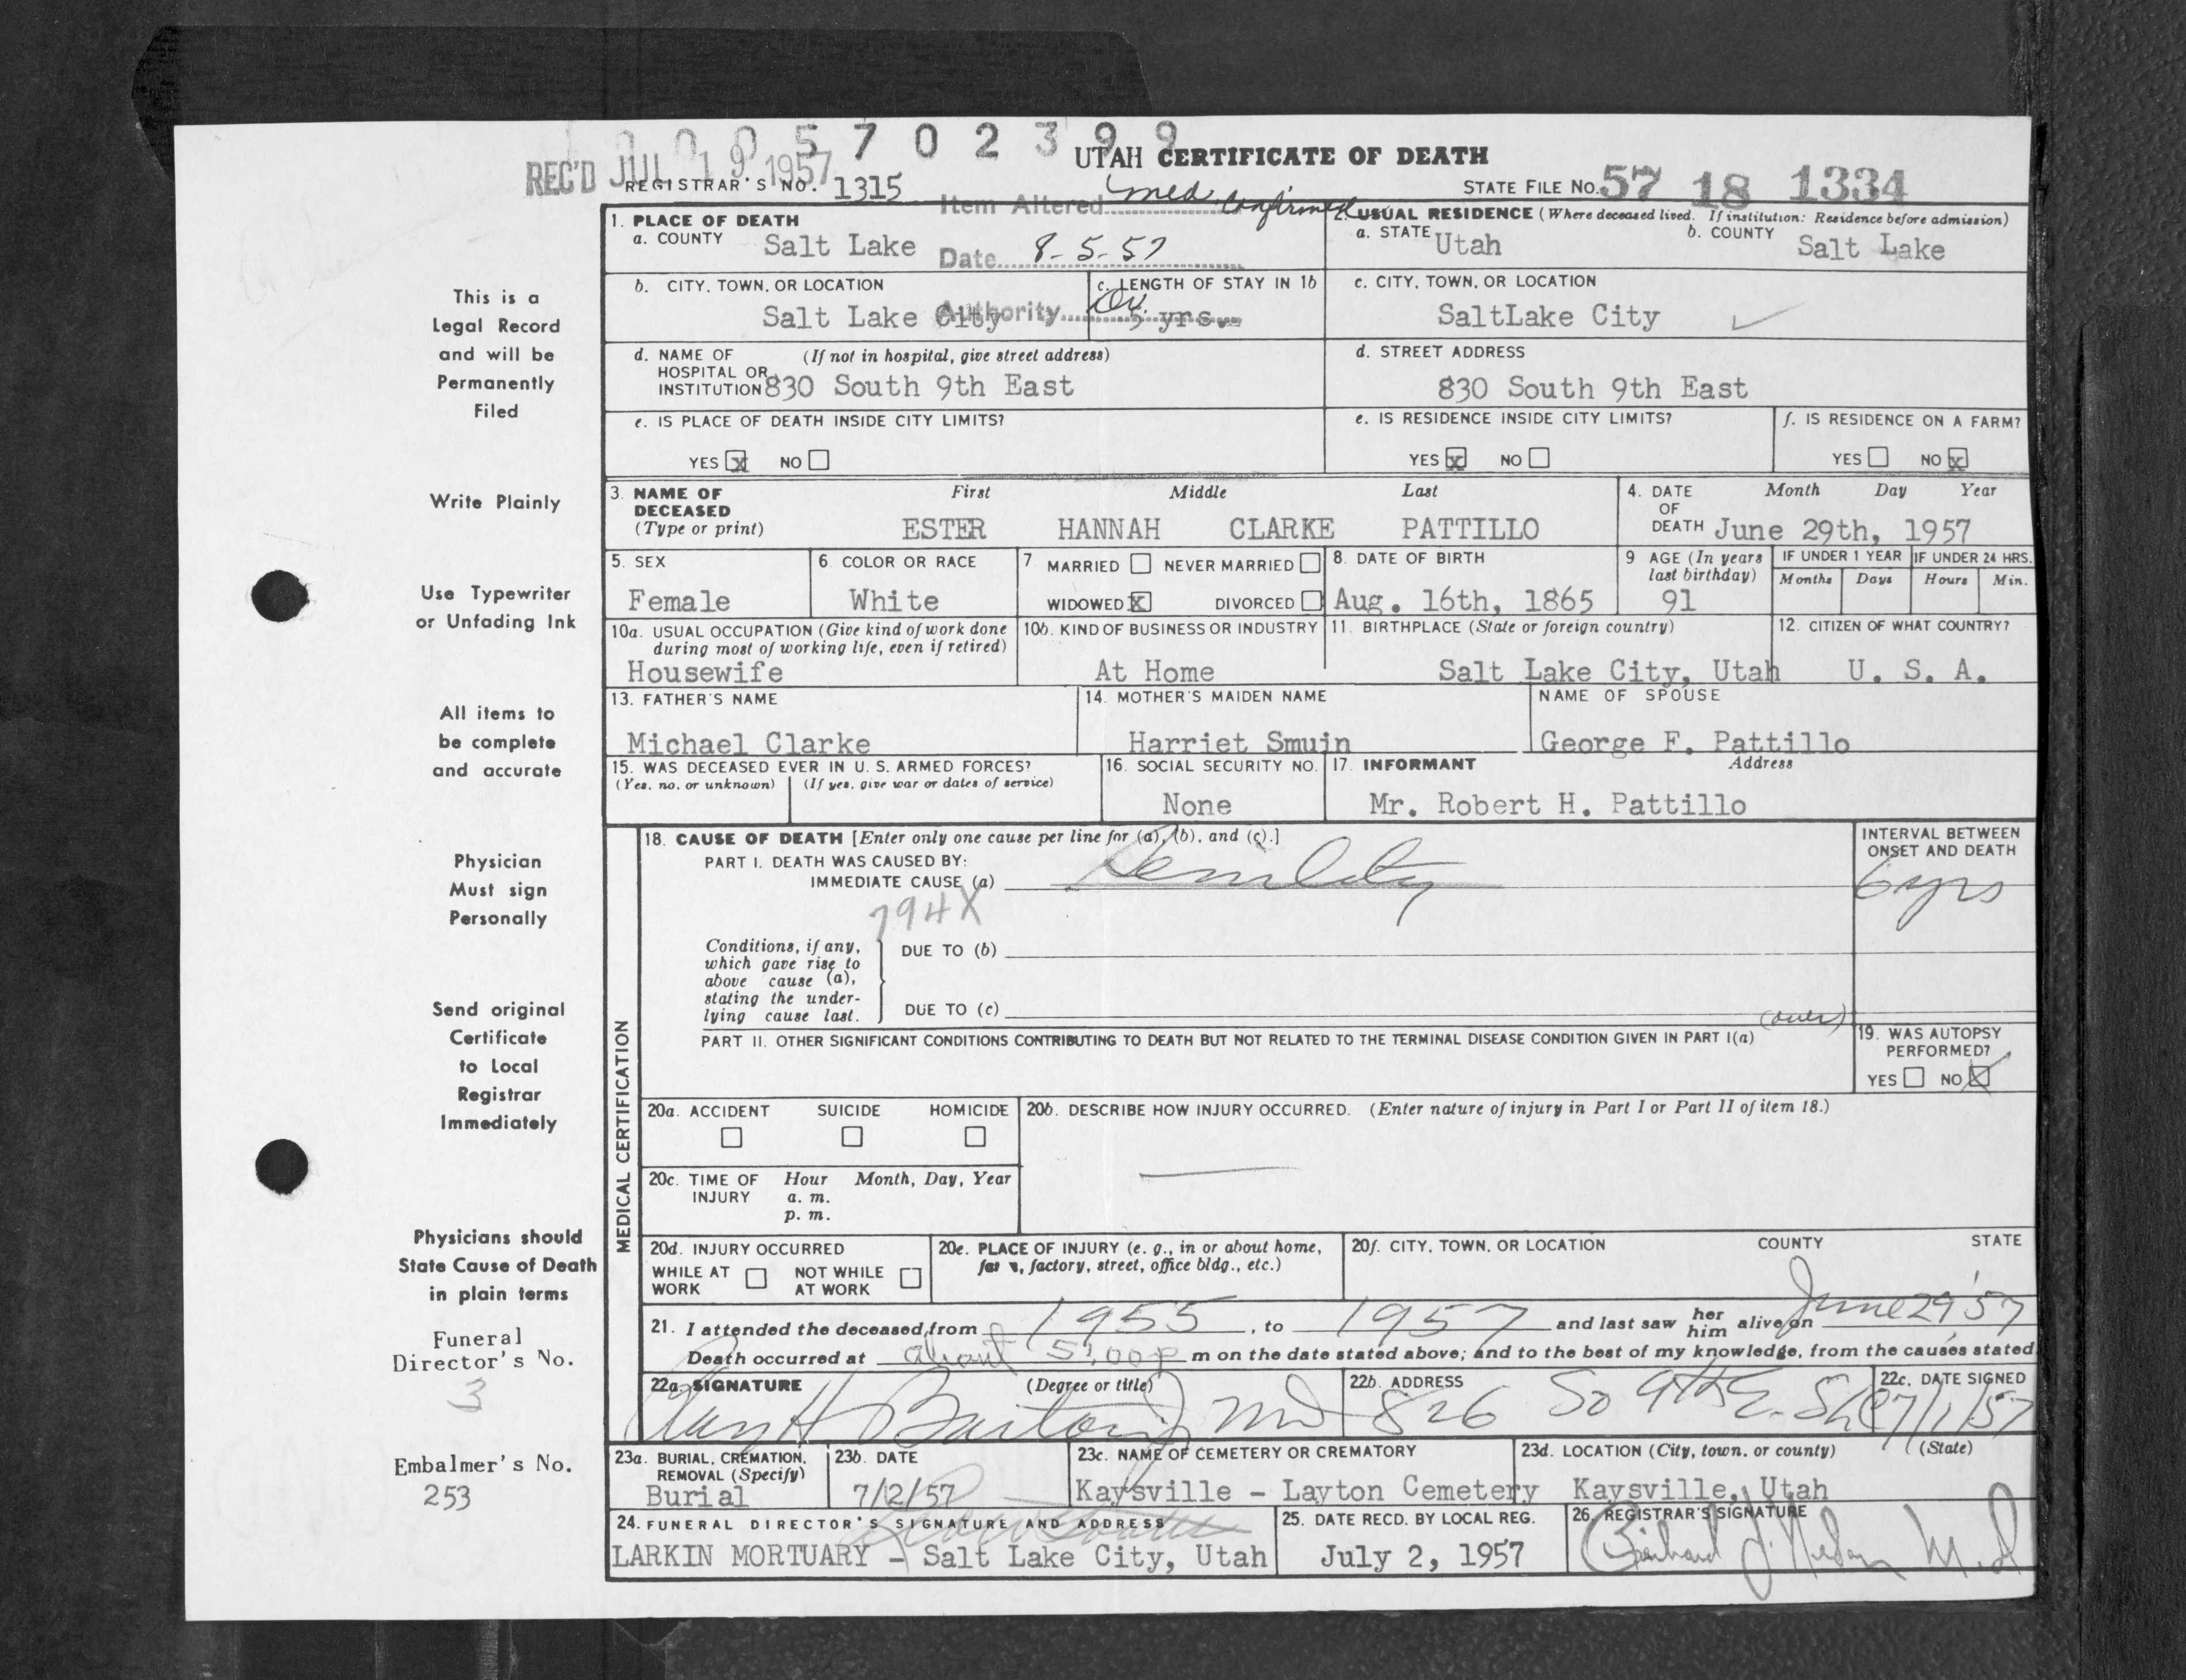 0005702399
REC'D JUL 19 1957
UTAH CERTIFICATE OF DEATH
REGISTRAR'S NO. 1315
STATE FILE NO. 57 18 1334
Item Altered med. confirmed
Date 8-5-57
Authority Dr.
1. PLACE OF DEATH
a. COUNTY Salt Lake
b. CITY, TOWN, OR LOCATION
Salt Lake City
c. LENGTH OF STAY IN 1b
5 yrs.
d. NAME OF HOSPITAL OR INSTITUTION (If not in hospital, give street address)
830 South 9th East
e. IS PLACE OF DEATH INSIDE CITY LIMITS?
YES x NO
2. USUAL RESIDENCE (Where deceased lived. If institution: Residence before admission)
a. STATE Utah b. COUNTY Salt Lake
c. CITY, TOWN, OR LOCATION
SaltLake City
d. STREET ADDRESS
830 South 9th East
e. IS RESIDENCE INSIDE CITY LIMITS?
YES x NO
f. IS RESIDENCE ON A FARM?
YES NO x
3. NAME OF DECEASED (Type or print) First Middle Last
ESTER HANNAH CLARKE PATTILLO
4. DATE OF DEATH Month Day Year
June 29th, 1957
5. SEX
Female
6. COLOR OR RACE
White
7. MARRIED NEVER MARRIED
WIDOWED X DIVORCED
8. DATE OF BIRTH
Aug. 16th, 1865
9. AGE (In years last birthday)
91
IF UNDER 1 YEAR
Months Days
IF UNDER 24 HRS.
Hours Min.
10a. USUAL OCCUPATION (Give kind of work done during most of working life, even if retired)
Housewife
10b. KIND OF BUSINESS OR INDUSTRY
At Home
11. BIRTHPLACE (State or foreign country)
Salt Lake City, Utah
12. CITIZEN OF WHAT COUNTRY?
U. S. A.
13. FATHER'S NAME
Michael Clarke
14. MOTHER'S MAIDEN NAME
Harriet Smuin
NAME OF SPOUSE
George F. Pattillo
15. WAS DECEASED EVER IN U. S. ARMED FORCES?
(Yes, no, or unknown) (If yes, give war or dates of service)
16. SOCIAL SECURITY NO.
None
17. INFORMANT Address
Mr. Robert H. Pattillo
MEDICAL CERTIFICATION
18. CAUSE OF DEATH [Enter only one cause per line for (a), (b), and (c).]
PART I. DEATH WAS CAUSED BY:
IMMEDIATE CAUSE (a) Senility
794X
INTERVAL BETWEEN ONSET AND DEATH
6 yrs
Conditions, if any, which gave rise to above cause (a), stating the underlying cause last.
DUE TO (b)
DUE TO (c)
(over)
PART II. OTHER SIGNIFICANT CONDITIONS CONTRIBUTING TO DEATH BUT NOT RELATED TO THE TERMINAL DISEASE CONDITION GIVEN IN PART I(a)
19. WAS AUTOPSY PERFORMED?
YES NO X
20a. ACCIDENT SUICIDE HOMICIDE
20b. DESCRIBE HOW INJURY OCCURRED. (Enter nature of injury in Part I or Part II of item 18.)
20c. TIME OF INJURY Hour Month, Day, Year
a. m.
p. m.
20d. INJURY OCCURRED
WHILE AT WORK NOT WHILE AT WORK
20e. PLACE OF INJURY (e. g., in or about home, farm, factory, street, office bldg., etc.)
20f. CITY, TOWN, OR LOCATION COUNTY STATE
21. I attended the deceased from 1955, to 1957 and last saw her him alive on June 29 '57
Death occurred at about 5:00 p m on the date stated above; and to the best of my knowledge, from the causes stated.
22a. SIGNATURE (Degree or title)
Barton MD
22b. ADDRESS
826 So 9th E. SLC
22c. DATE SIGNED
7/1/57
23a. BURIAL, CREMATION, REMOVAL (Specify)
Burial
23b. DATE
7/2/57
23c. NAME OF CEMETERY OR CREMATORY
Kaysville - Layton Cemetery
23d. LOCATION (City, town, or county) (State)
Kaysville, Utah
24. FUNERAL DIRECTOR'S SIGNATURE AND ADDRESS
LARKIN MORTUARY - Salt Lake City, Utah
25. DATE RECD. BY LOCAL REG.
July 2, 1957
26. REGISTRAR'S SIGNATURE
M.D
This is a
Legal Record
and will be
Permanently
Filed
Write Plainly
Use Typewriter
or Unfading Ink
All items to
be complete
and accurate
Physician
Must sign
Personally
Send original
Certificate
to Local
Registrar
Immediately
Physicians should
State Cause of Death
in plain terms
Funeral
Director's No.
3
Embalmer's No.
253